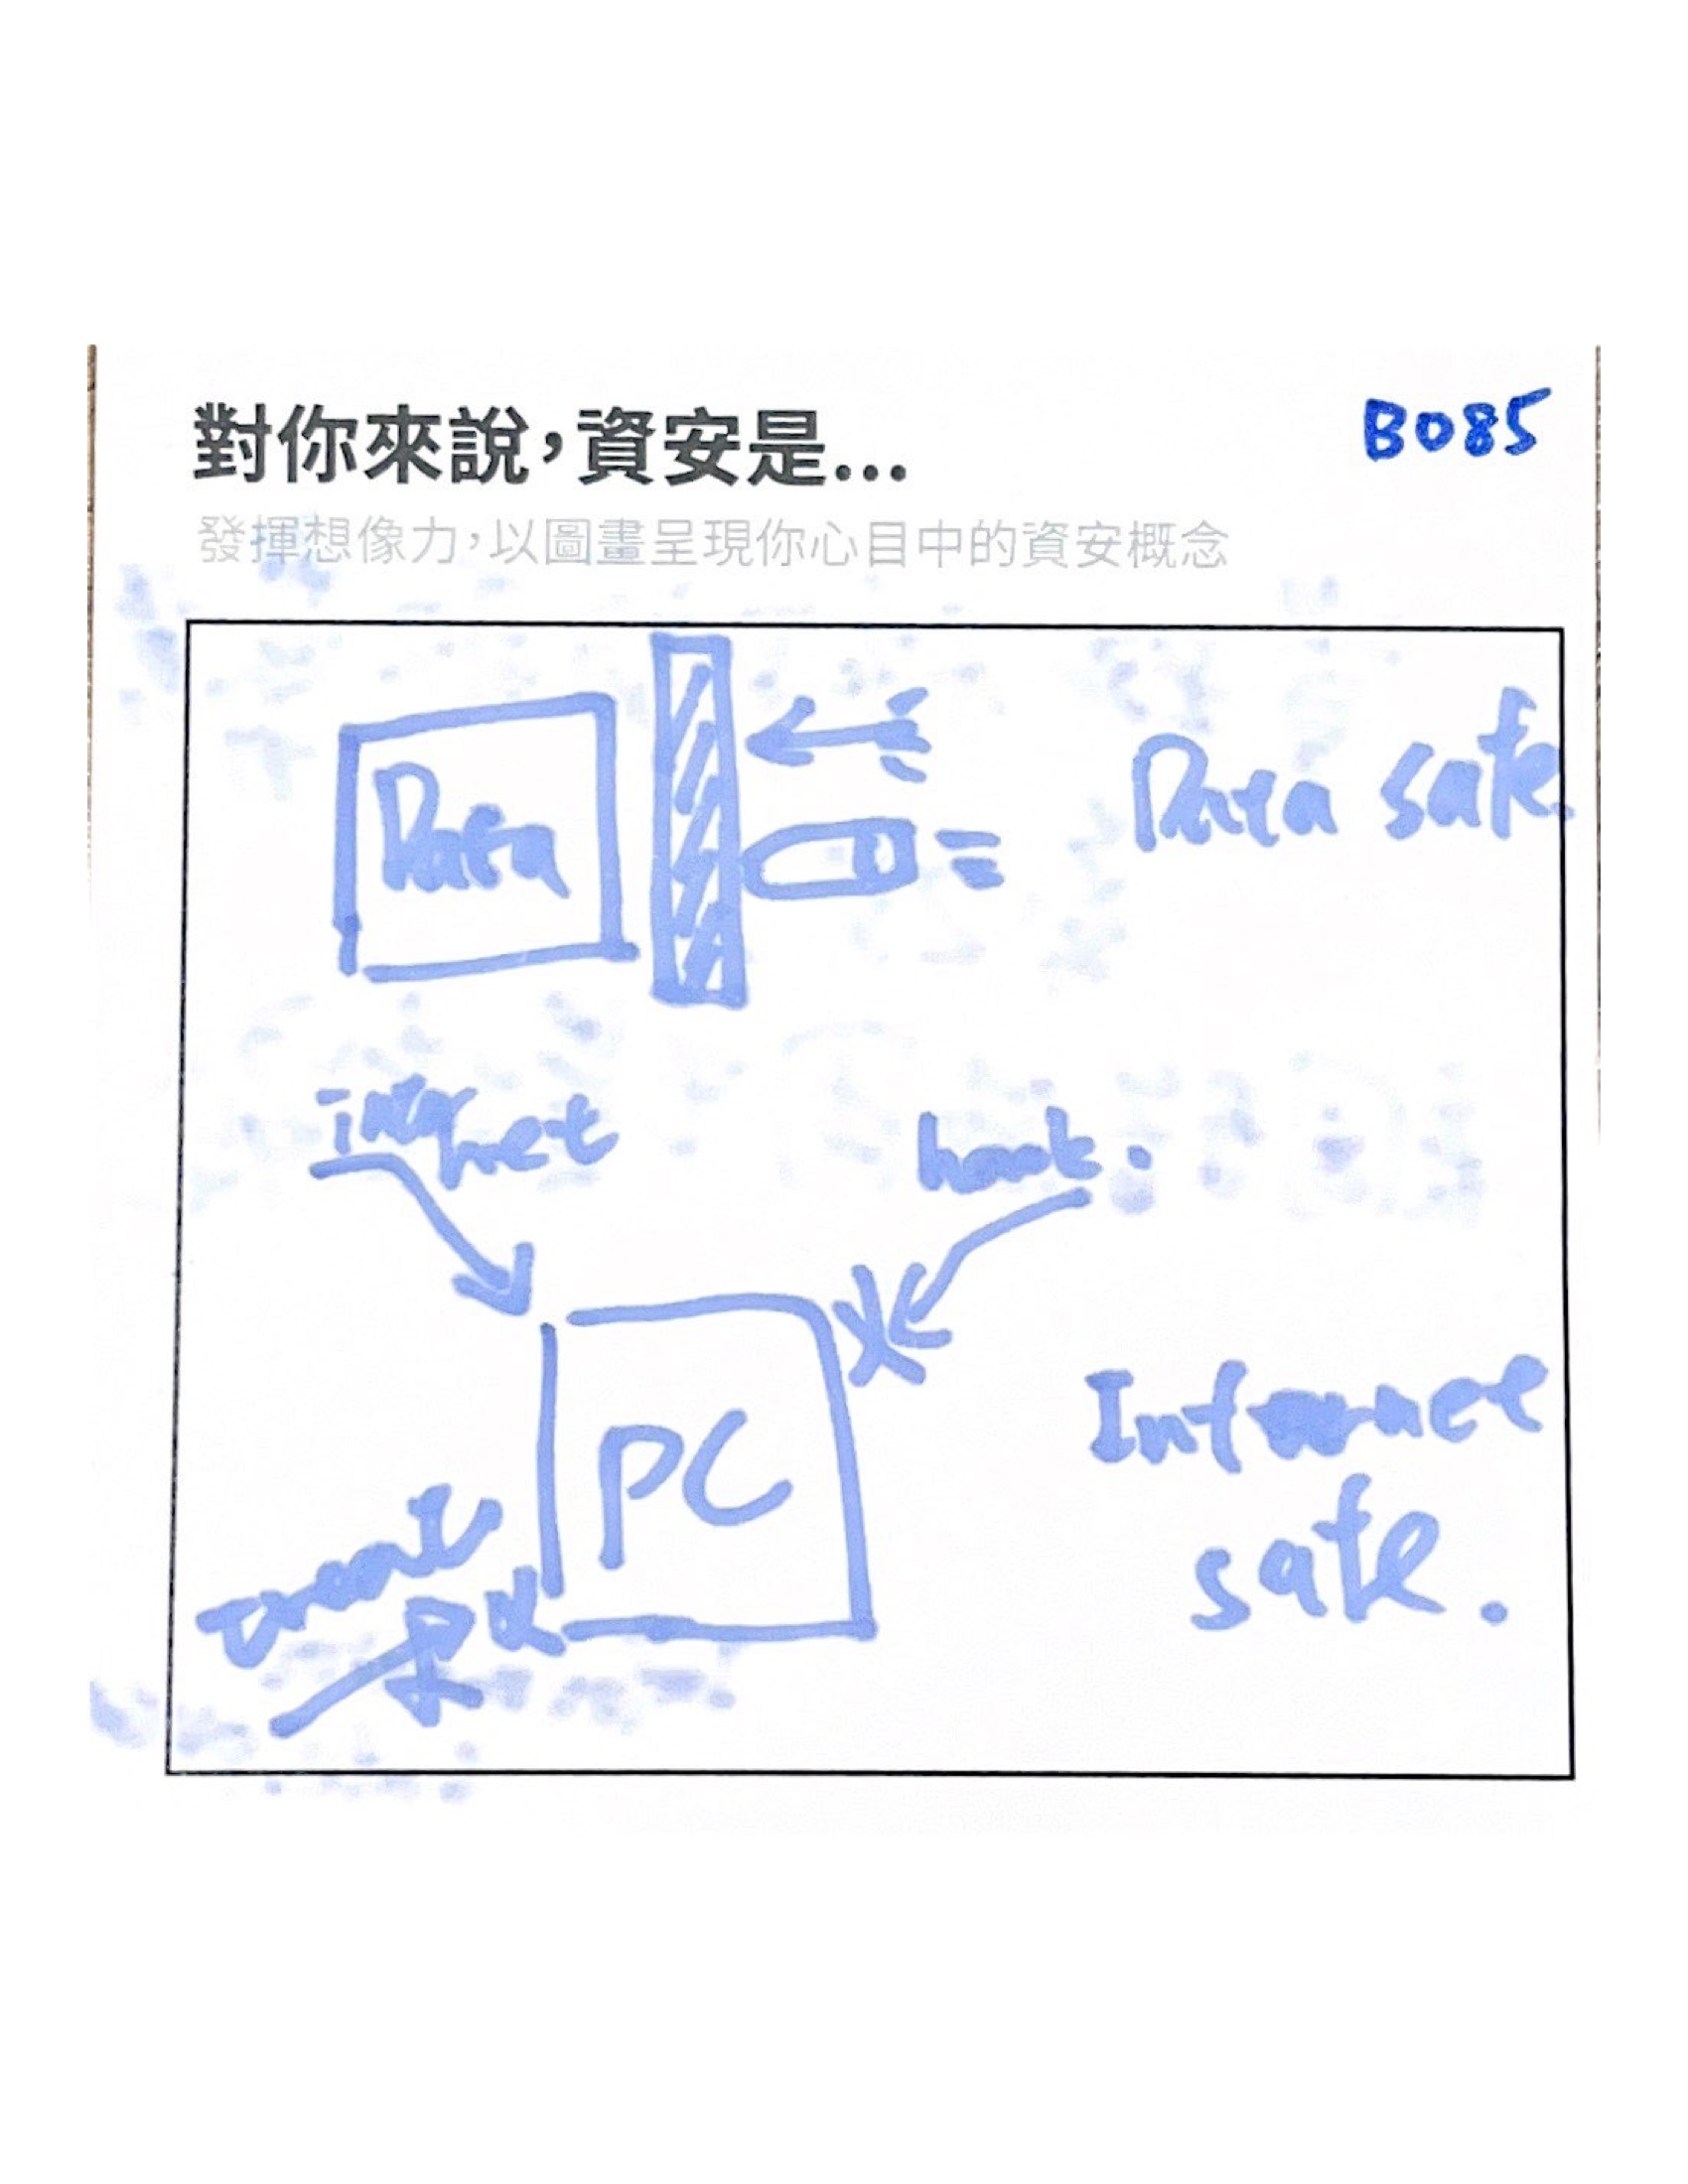 對你來說,資安是...
B085
發揮想像力,以圖畫呈現你心目中的資安概念
Data
Data safe.
internet
PC
Internet
safe.